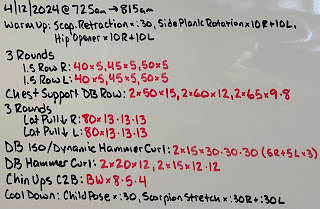 4/12/2024 @ 725am → 815am
Warm Up: Scap. Retraction x :30, Side Plank Rotation x 10R + 10L,
Hip Opener x 10R + 10L
3 Rounds
1.5 Row R: 40x5, 45x5, 50x5
1.5 Row L: 40x5, 45x5, 50x5
Chest Support DB Row: 2x50x15, 2x60x12, 2x65x9·8
3 Rounds
Lat Pull ↓ R: 80x13·13·13
Lat Pull ↓ L: 80x13·13·13
DB Iso/Dynamic Hammer Curl: 2x15x30·30·30 (5R+5Lx3)
DB Hammer Curl: 2x20x12, 2x15x12·12
Chin Ups C2B: BWx8·5·4
Cool Down: Child Pose x :30, Scorpion Stretch x :30R + :30L